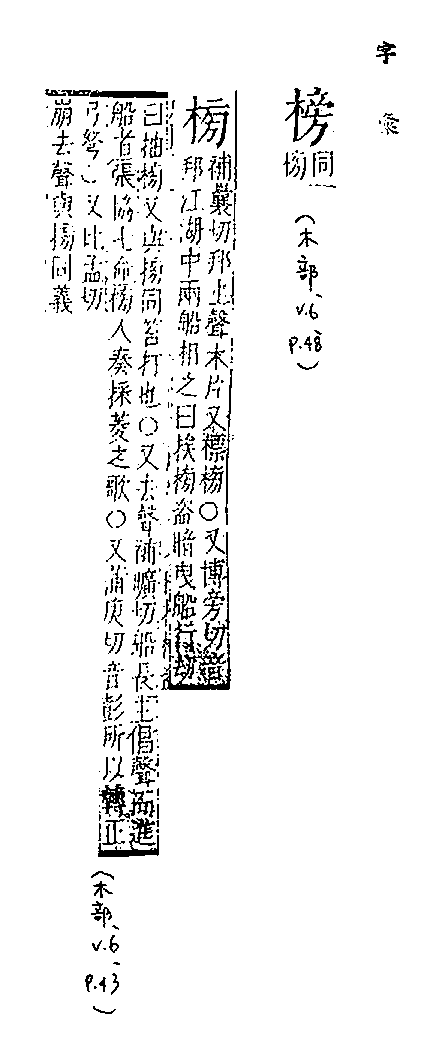 字彙
榜 同㮄
(木部, v.6, p.48)
㮄 補曩切邦上聲木片又標㮄○又博旁切音
邦江湖中兩船 之曰挨㮄盜暗曳船行劫
曰抽㮄又與搒同笞打也○又去聲補曠切船長主倡聲而進
船者張協七命搒人奏採菱之歌○又蒲庚切音彭所以轉正
弓弩○又比孟切
崩去聲與搒同義
(木部, v.6, p.43)